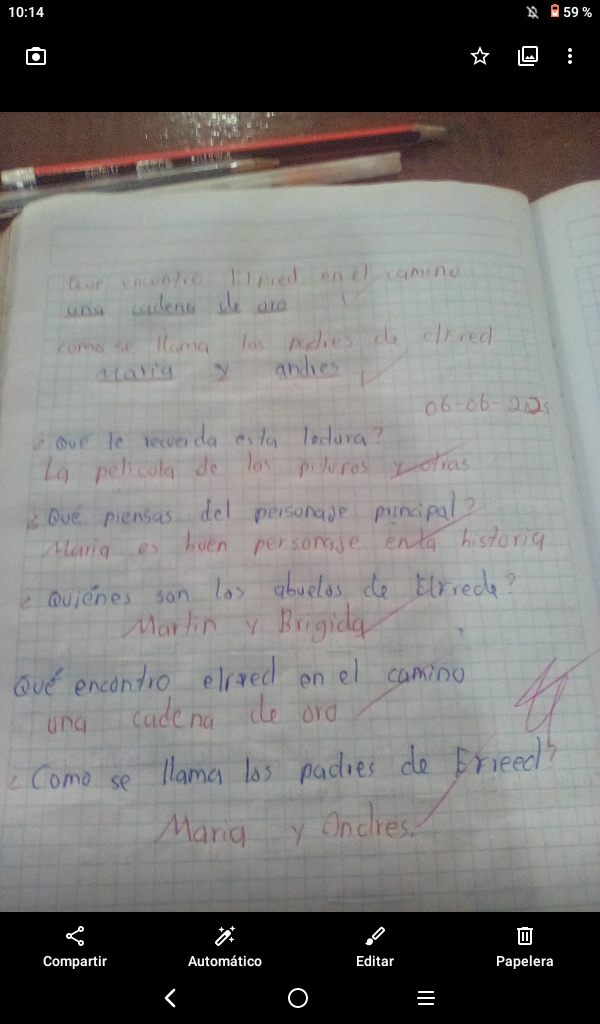 10:14
59 %
Que encontro en el camino
una cadena de oro
como se llama los padres de elrred
Maria y andres
06-06-202
¿Que te recuerda esta lectura?
La pelicula de los pituros y otras
¿Qué piensas del personaje principal?
Maria es buen personaje en la historia
¿Quiénes son los abuelos de
Martin y Brigida
Qué encontro elrred en el camino
una cadena de oro
¿Como se llama los padres de
Maria y Andres.
Compartir
Automático
Editar
Papelera